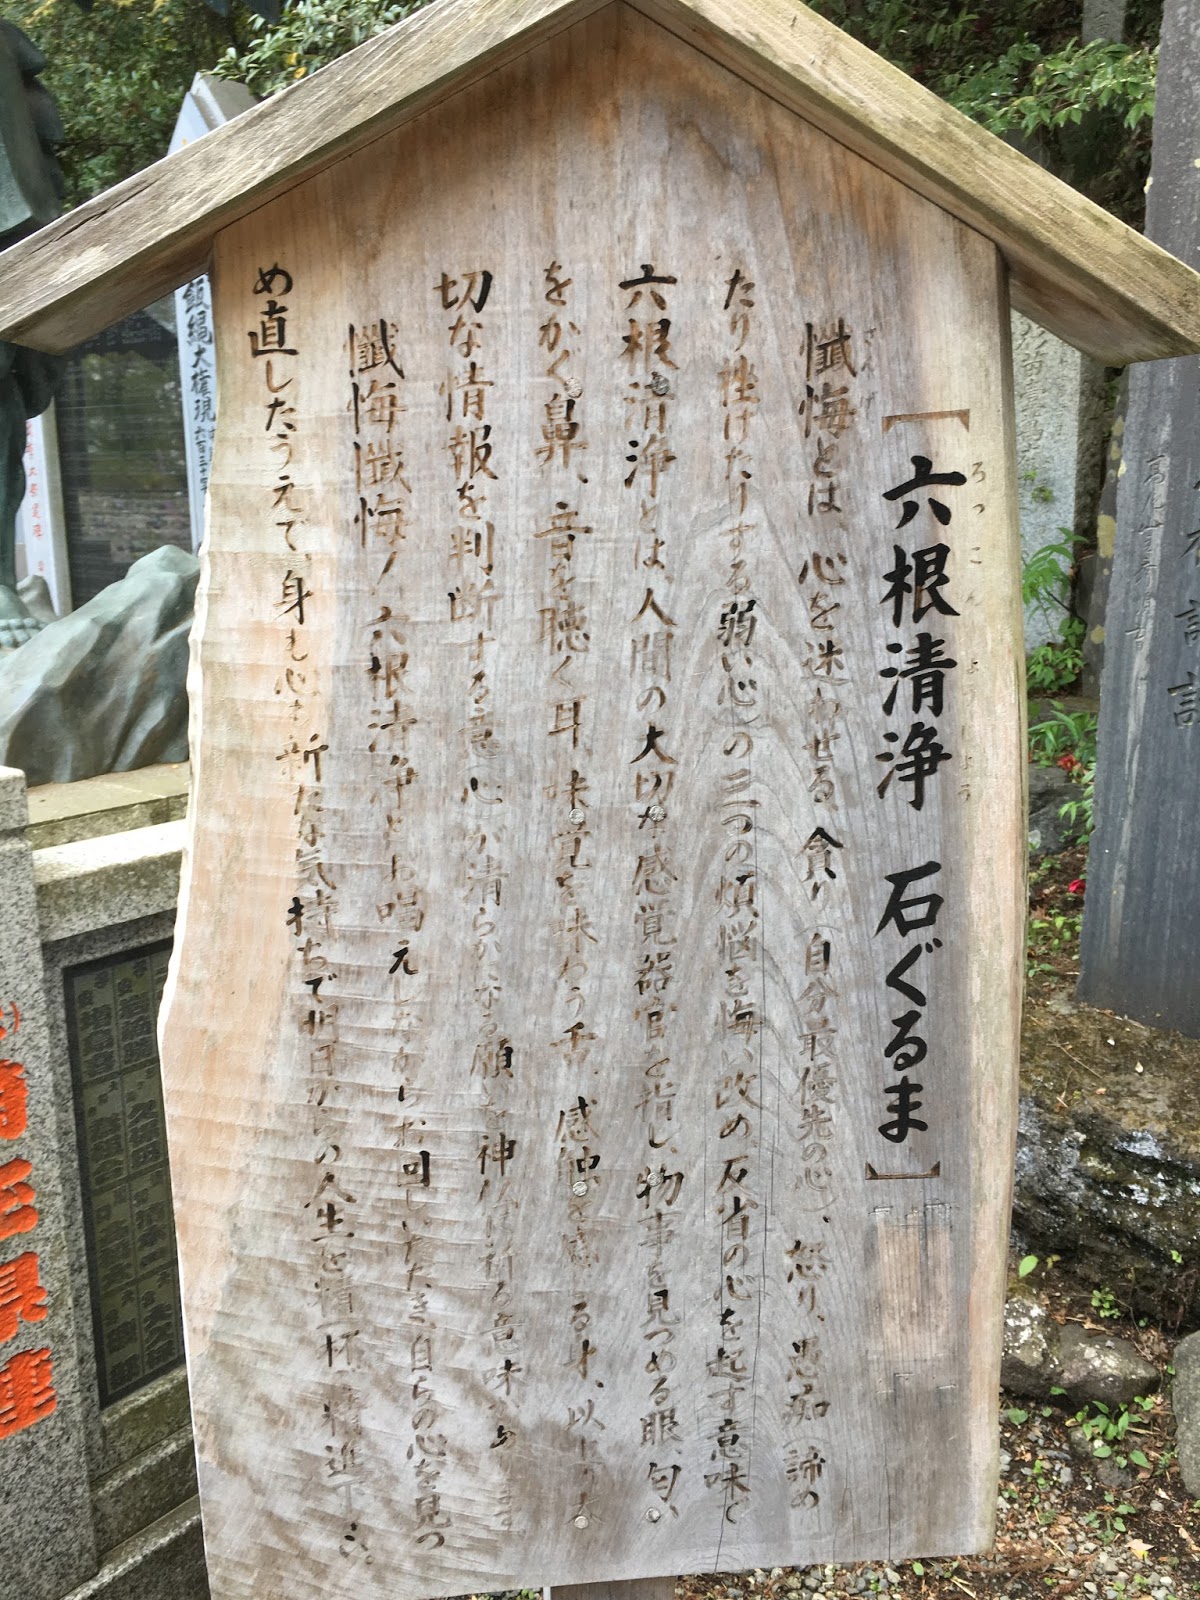 ［六根清浄　石ぐるま］
ろっこんしょうじょう
ざんげ
懺悔とは、心を迷わせる、貪り（自分最優先の心）、怒り、愚痴（諦め
たり挫けたりする弱い心）の三つの煩悩を悔い改め、反省の心を起す意味で
六根清浄とは、人間の大切な感覚器官を指し、物事を見つめる眼、匂い
をかぐ鼻、音を聴く耳、味覚を味わう舌、感触を感じる身、以上の大
切な情報を判断する意、心が清らかなる願いを神仏に祈る意味があります
懺悔懺悔！六根清浄とお唱えしながらお回しいただき、自らの心を見つ
め直したうえで、身も心も新たな気持ちで明日からの人生を精一杯精進下さい。
飯縄大権現